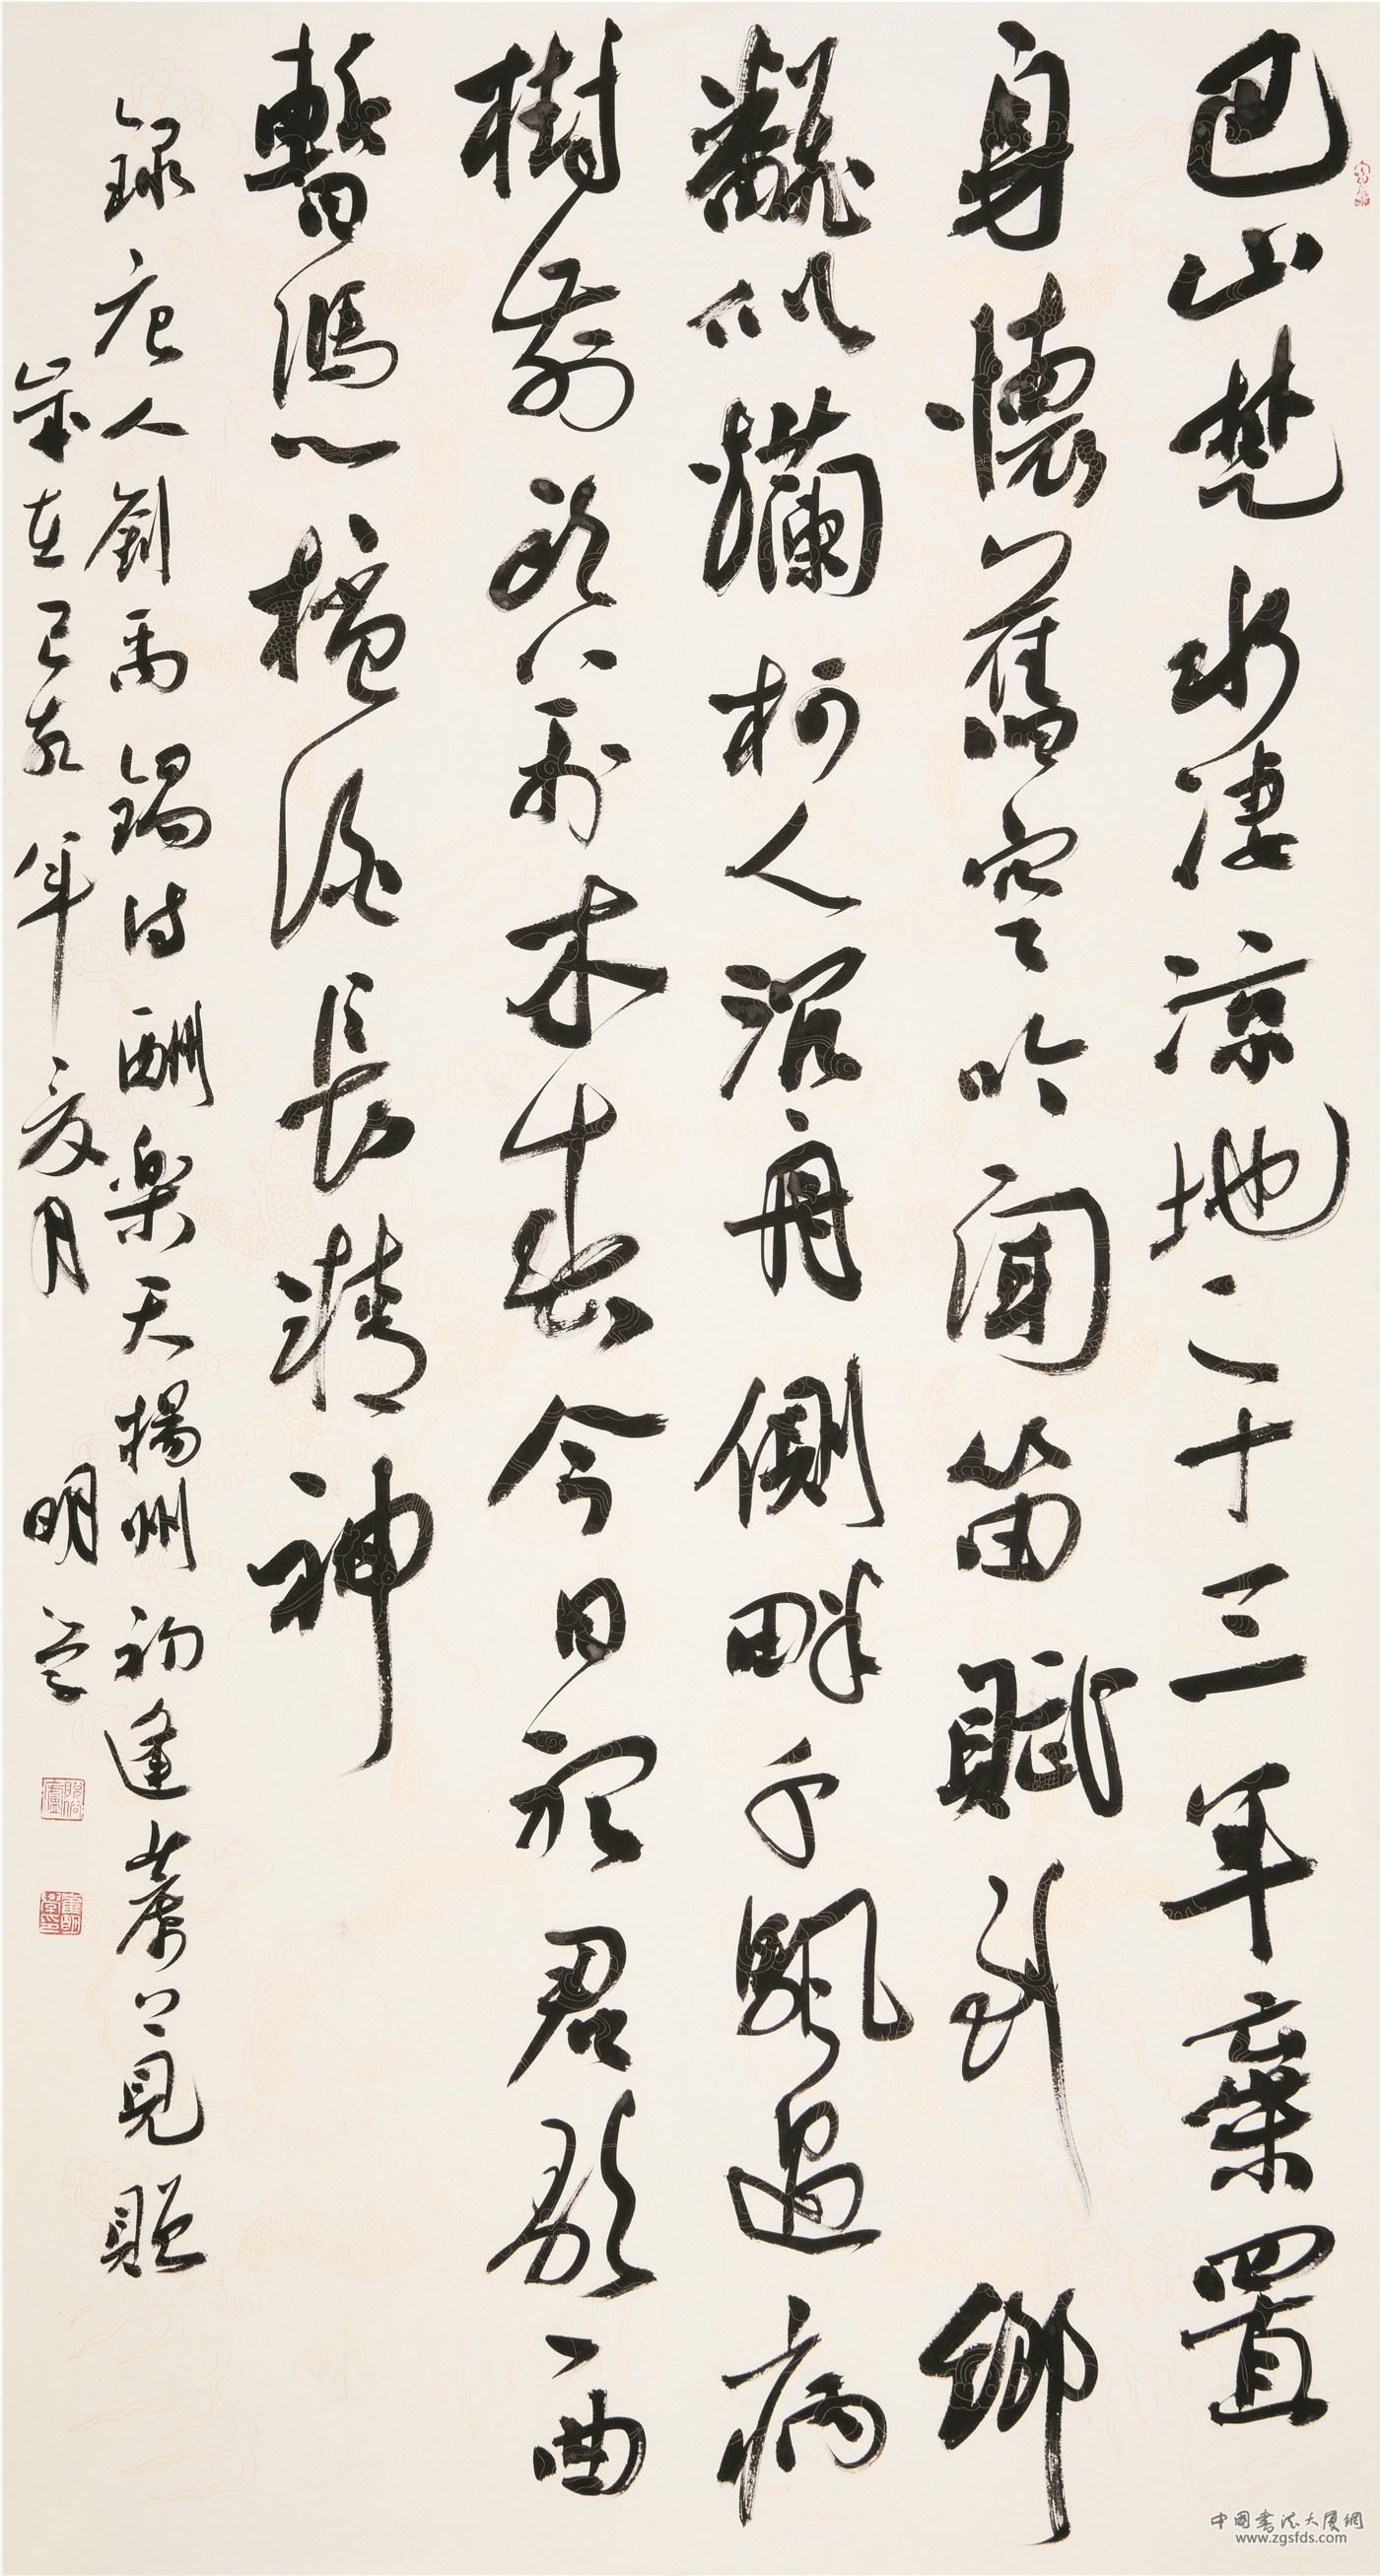 巴山楚水淒涼地二十三年棄置
身懷舊空吟聞笛賦到鄉
翻似爛柯人沉舟側畔千颿過病
樹前頭萬木春今日聽君歌一曲
暫憑桮酒長精神
錄唐人劉禹錫詩酬樂天揚州初逢席上見贈
歲在己亥年夏月 明學
中國書法大廈網
www.zgsfds.com